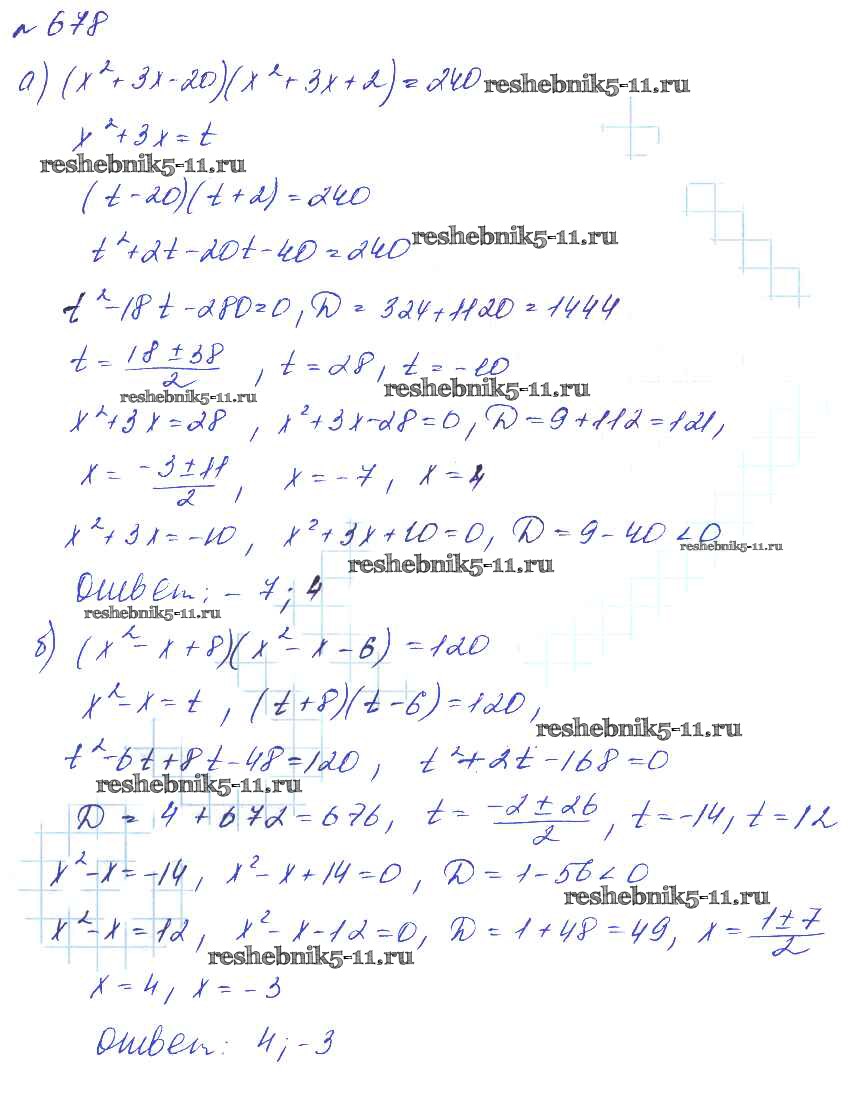 № 678
а) (x² + 3x - 20)(x² + 3x + 2) = 240 reshebnik5-11.ru
x² + 3x = t
reshebnik5-11.ru
(t - 20)(t + 2) = 240
t² + 2t - 20t - 40 = 240 reshebnik5-11.ru
t² - 18t - 280 = 0, D = 324 + 1120 = 1444
t = (18 ± 38)/2, t = 28, t = -10
reshebnik5-11.ru reshebnik5-11.ru
x² + 3x = 28, x² + 3x - 28 = 0, D = 9 + 112 = 121,
x = (-3 ± 11)/2, x = -7, x = 4
x² + 3x = -10, x² + 3x + 10 = 0, D = 9 - 40 < 0
reshebnik5-11.ru reshebnik5-11.ru
Ответ: -7; 4
reshebnik5-11.ru
б) (x² - x + 8)(x² - x - 6) = 120
x² - x = t, (t + 8)(t - 6) = 120,
reshebnik5-11.ru
t² - 6t + 8t - 48 = 120, t² + 2t - 168 = 0
reshebnik5-11.ru
D = 4 + 672 = 676, t = (-2 ± 26)/2, t = -14, t = 12
x² - x = -14, x² - x + 14 = 0, D = 1 - 56 < 0
reshebnik5-11.ru
x² - x = 12, x² - x - 12 = 0, D = 1 + 48 = 49, x = (1 ± 7)/2
reshebnik5-11.ru
x = 4, x = -3
Ответ: 4; -3